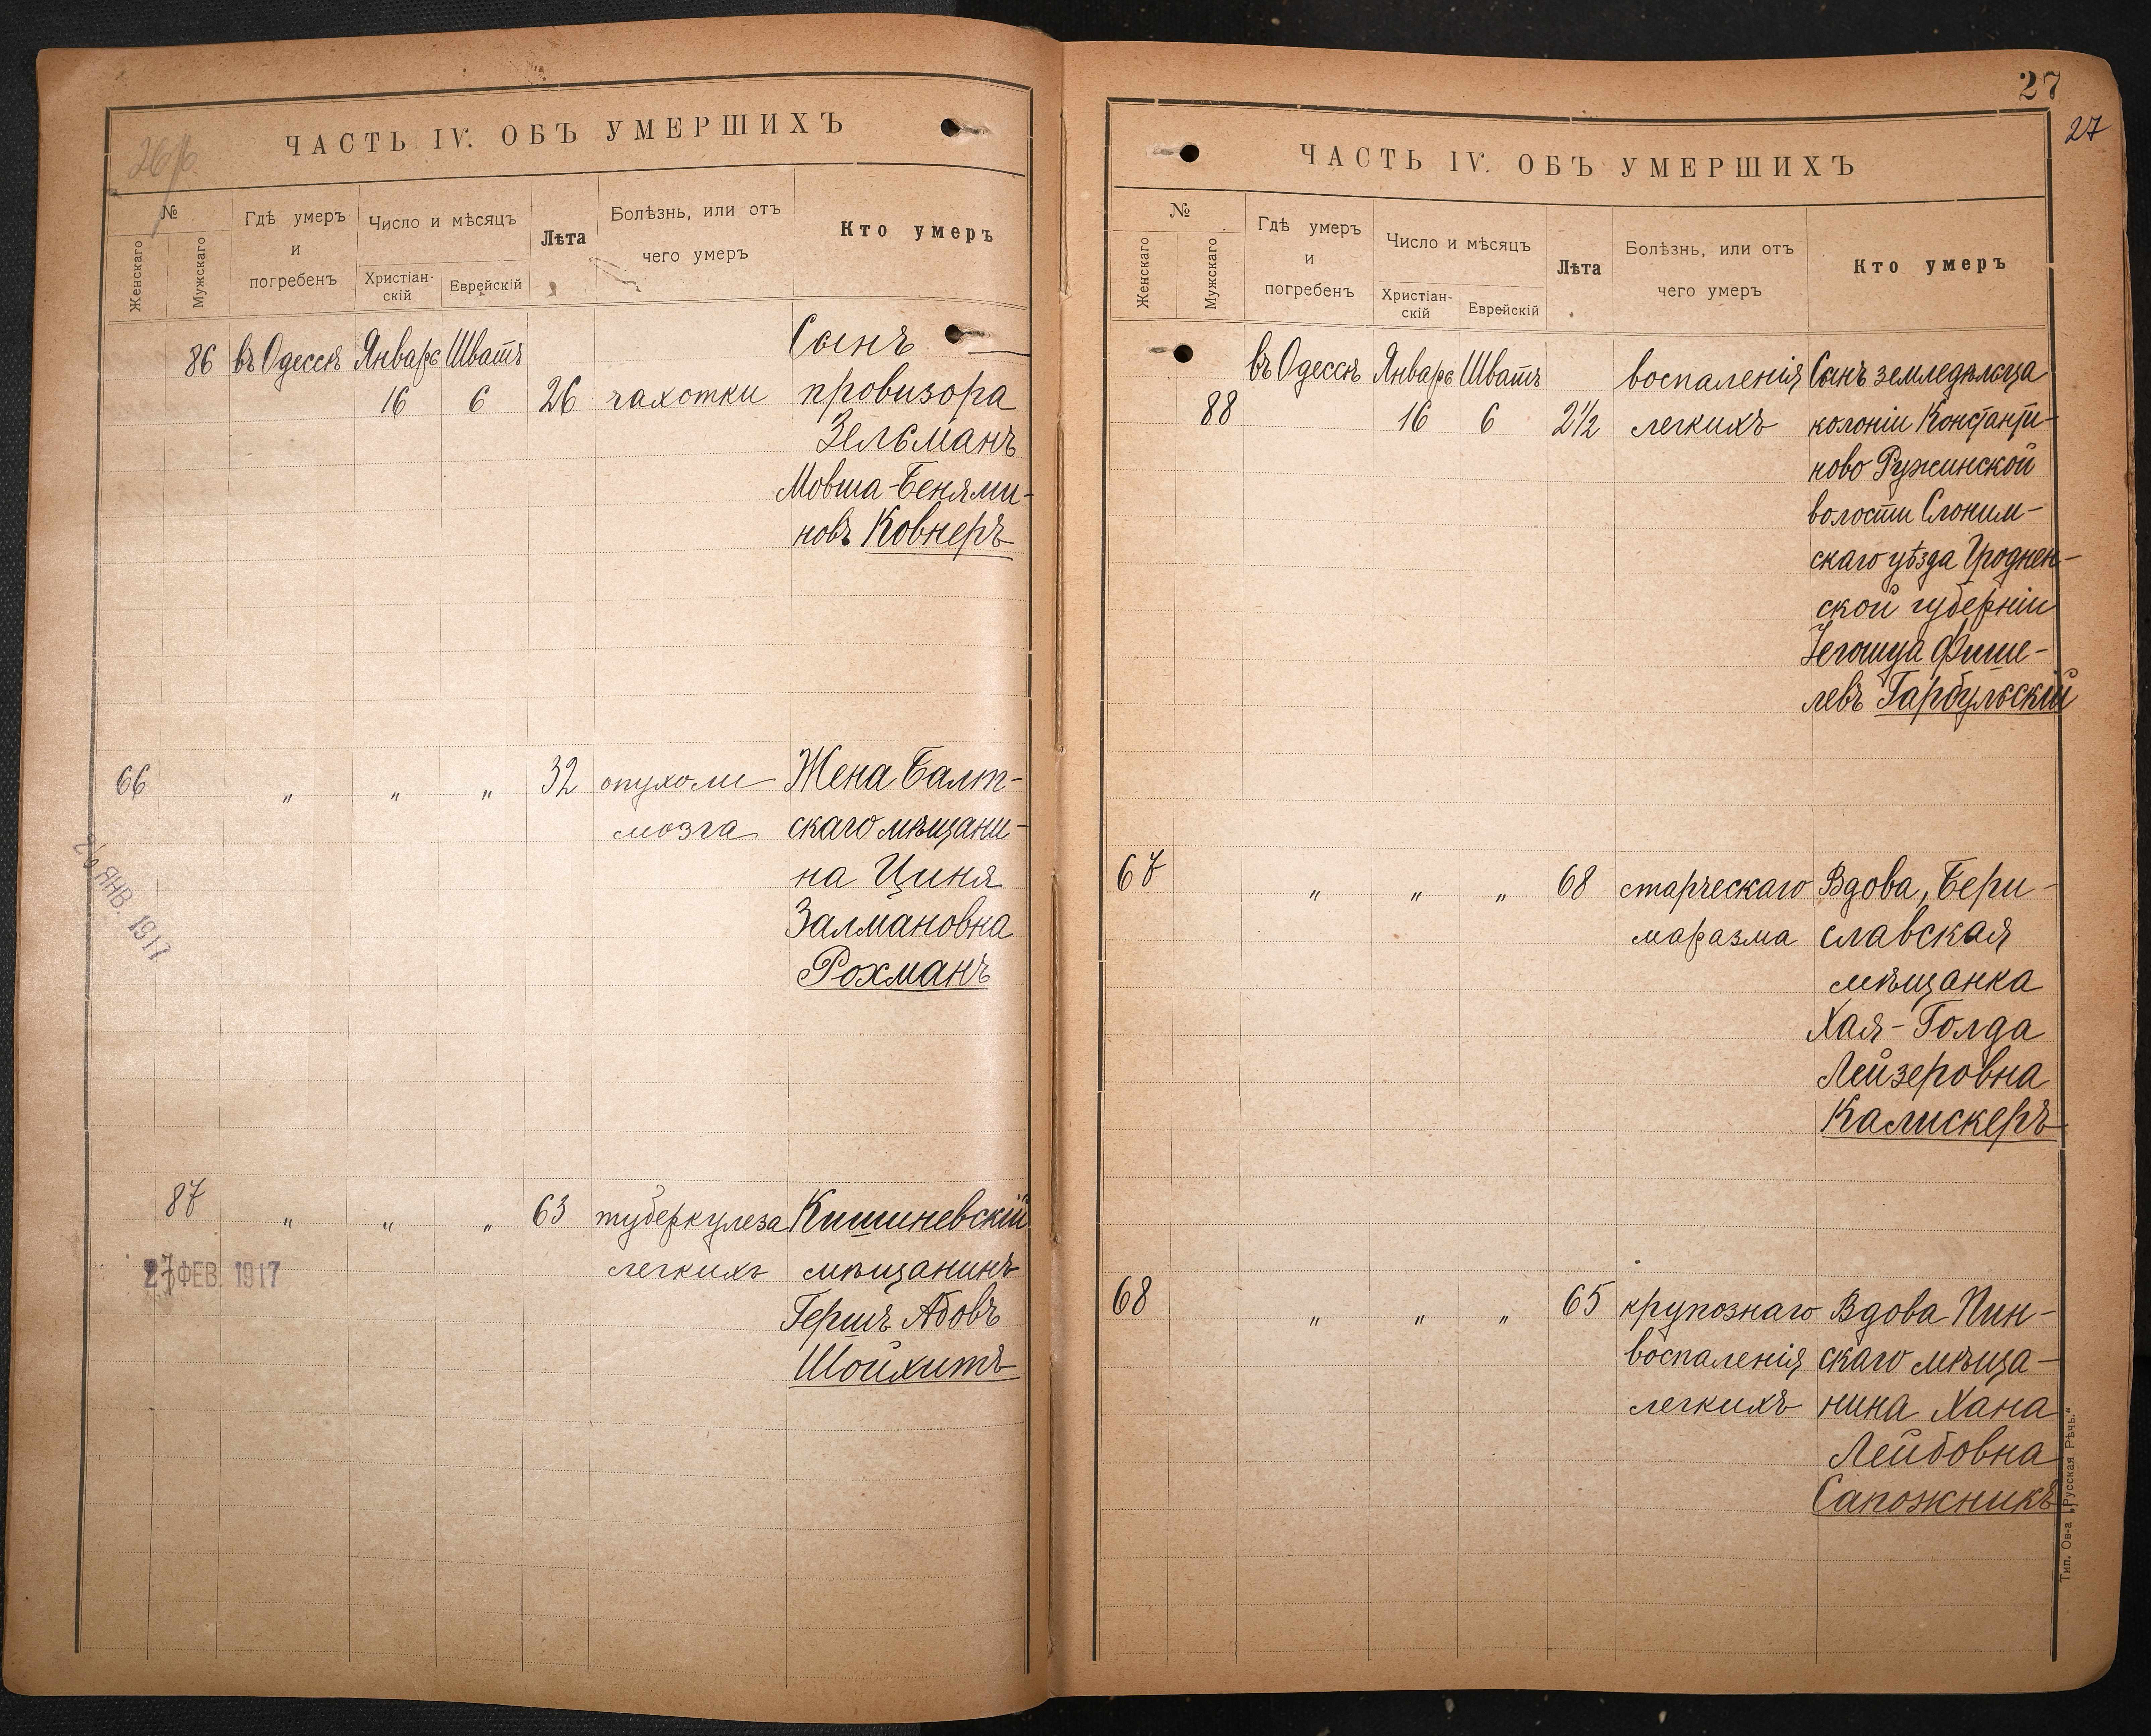 26/об.
ЧАСТЬ IV. ОБЪ УМЕРШИХЪ
№
Женскаго
Мужскаго
Гдѣ умеръ
и
погребенъ
Число и мѣсяцъ
Христіан-
скій
Еврейскій
Лѣта
Болѣзнь, или отъ
чего умеръ
Кто умеръ
86 въ Одессѣ Январь Шватъ Сынъ
16 6 26 чахотки провизора
Зельманъ
Мовша-Бенями-
новъ Ковнеръ
66 „ „ „ 32 опухоли Жена Балт-
мозга скаго мѣщани-
на Циня
Залмановна
Рохманъ
ЯНВ. 1917
87 „ „ „ 63 туберкулеза Кишиневскій
легкихъ мѣщанинъ
27 ФЕВ. 1917
Гершъ Абовъ
Шойхитъ
27
27
ЧАСТЬ IV. ОБЪ УМЕРШИХЪ
№
Женскаго
Мужскаго
Гдѣ умеръ
и
погребенъ
Число и мѣсяцъ
Христіан-
скій
Еврейскій
Лѣта
Болѣзнь, или отъ
чего умеръ
Кто умеръ
въ Одессѣ Январь Шватъ воспаленія Сынъ земледѣльца
88 16 6 2½ легкихъ колоніи Константи-
ново Ружинской
волости Слоним-
скаго уѣзда Гроднен-
ской губерніи
Іегошуа Фише-
левъ Гарбульскій
67 „ „ „ 68 старческаго Вдова, Бери-
маразма славская
мѣщанка
Хая-Голда
Лейзеровна
Калискеръ
68 „ „ „ 65 крупознаго Вдова Пин-
воспаленія скаго мѣща-
легкихъ нина Хана
Лейбовна
Сапожникъ
Тип. Ов-а „Русская Рѣчь."